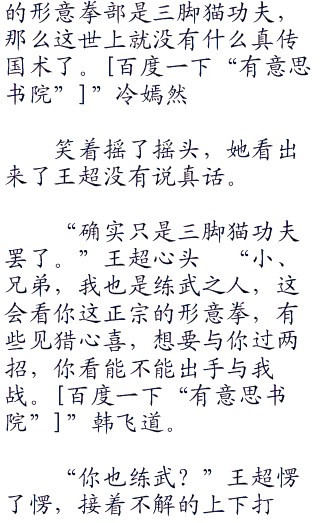 的形意拳部是三脚猫功夫，
那么这世上就没有什么真传
国术了。[百度一下“有意思
书院”]”冷嫣然
笑着摇了摇头，她看出
来了王超没有说真话。
“确实只是三脚猫功夫
罢了。”王超心头 “小、
兄弟，我也是练武之人，这
会看你这正宗的形意拳，有
些见猎心喜，想要与你过两
招，你看能不能出手与我
战。[百度一下“有意思书
院”]”韩飞道。
“你也练武？”王超愣
了愣，接着不解的上下打